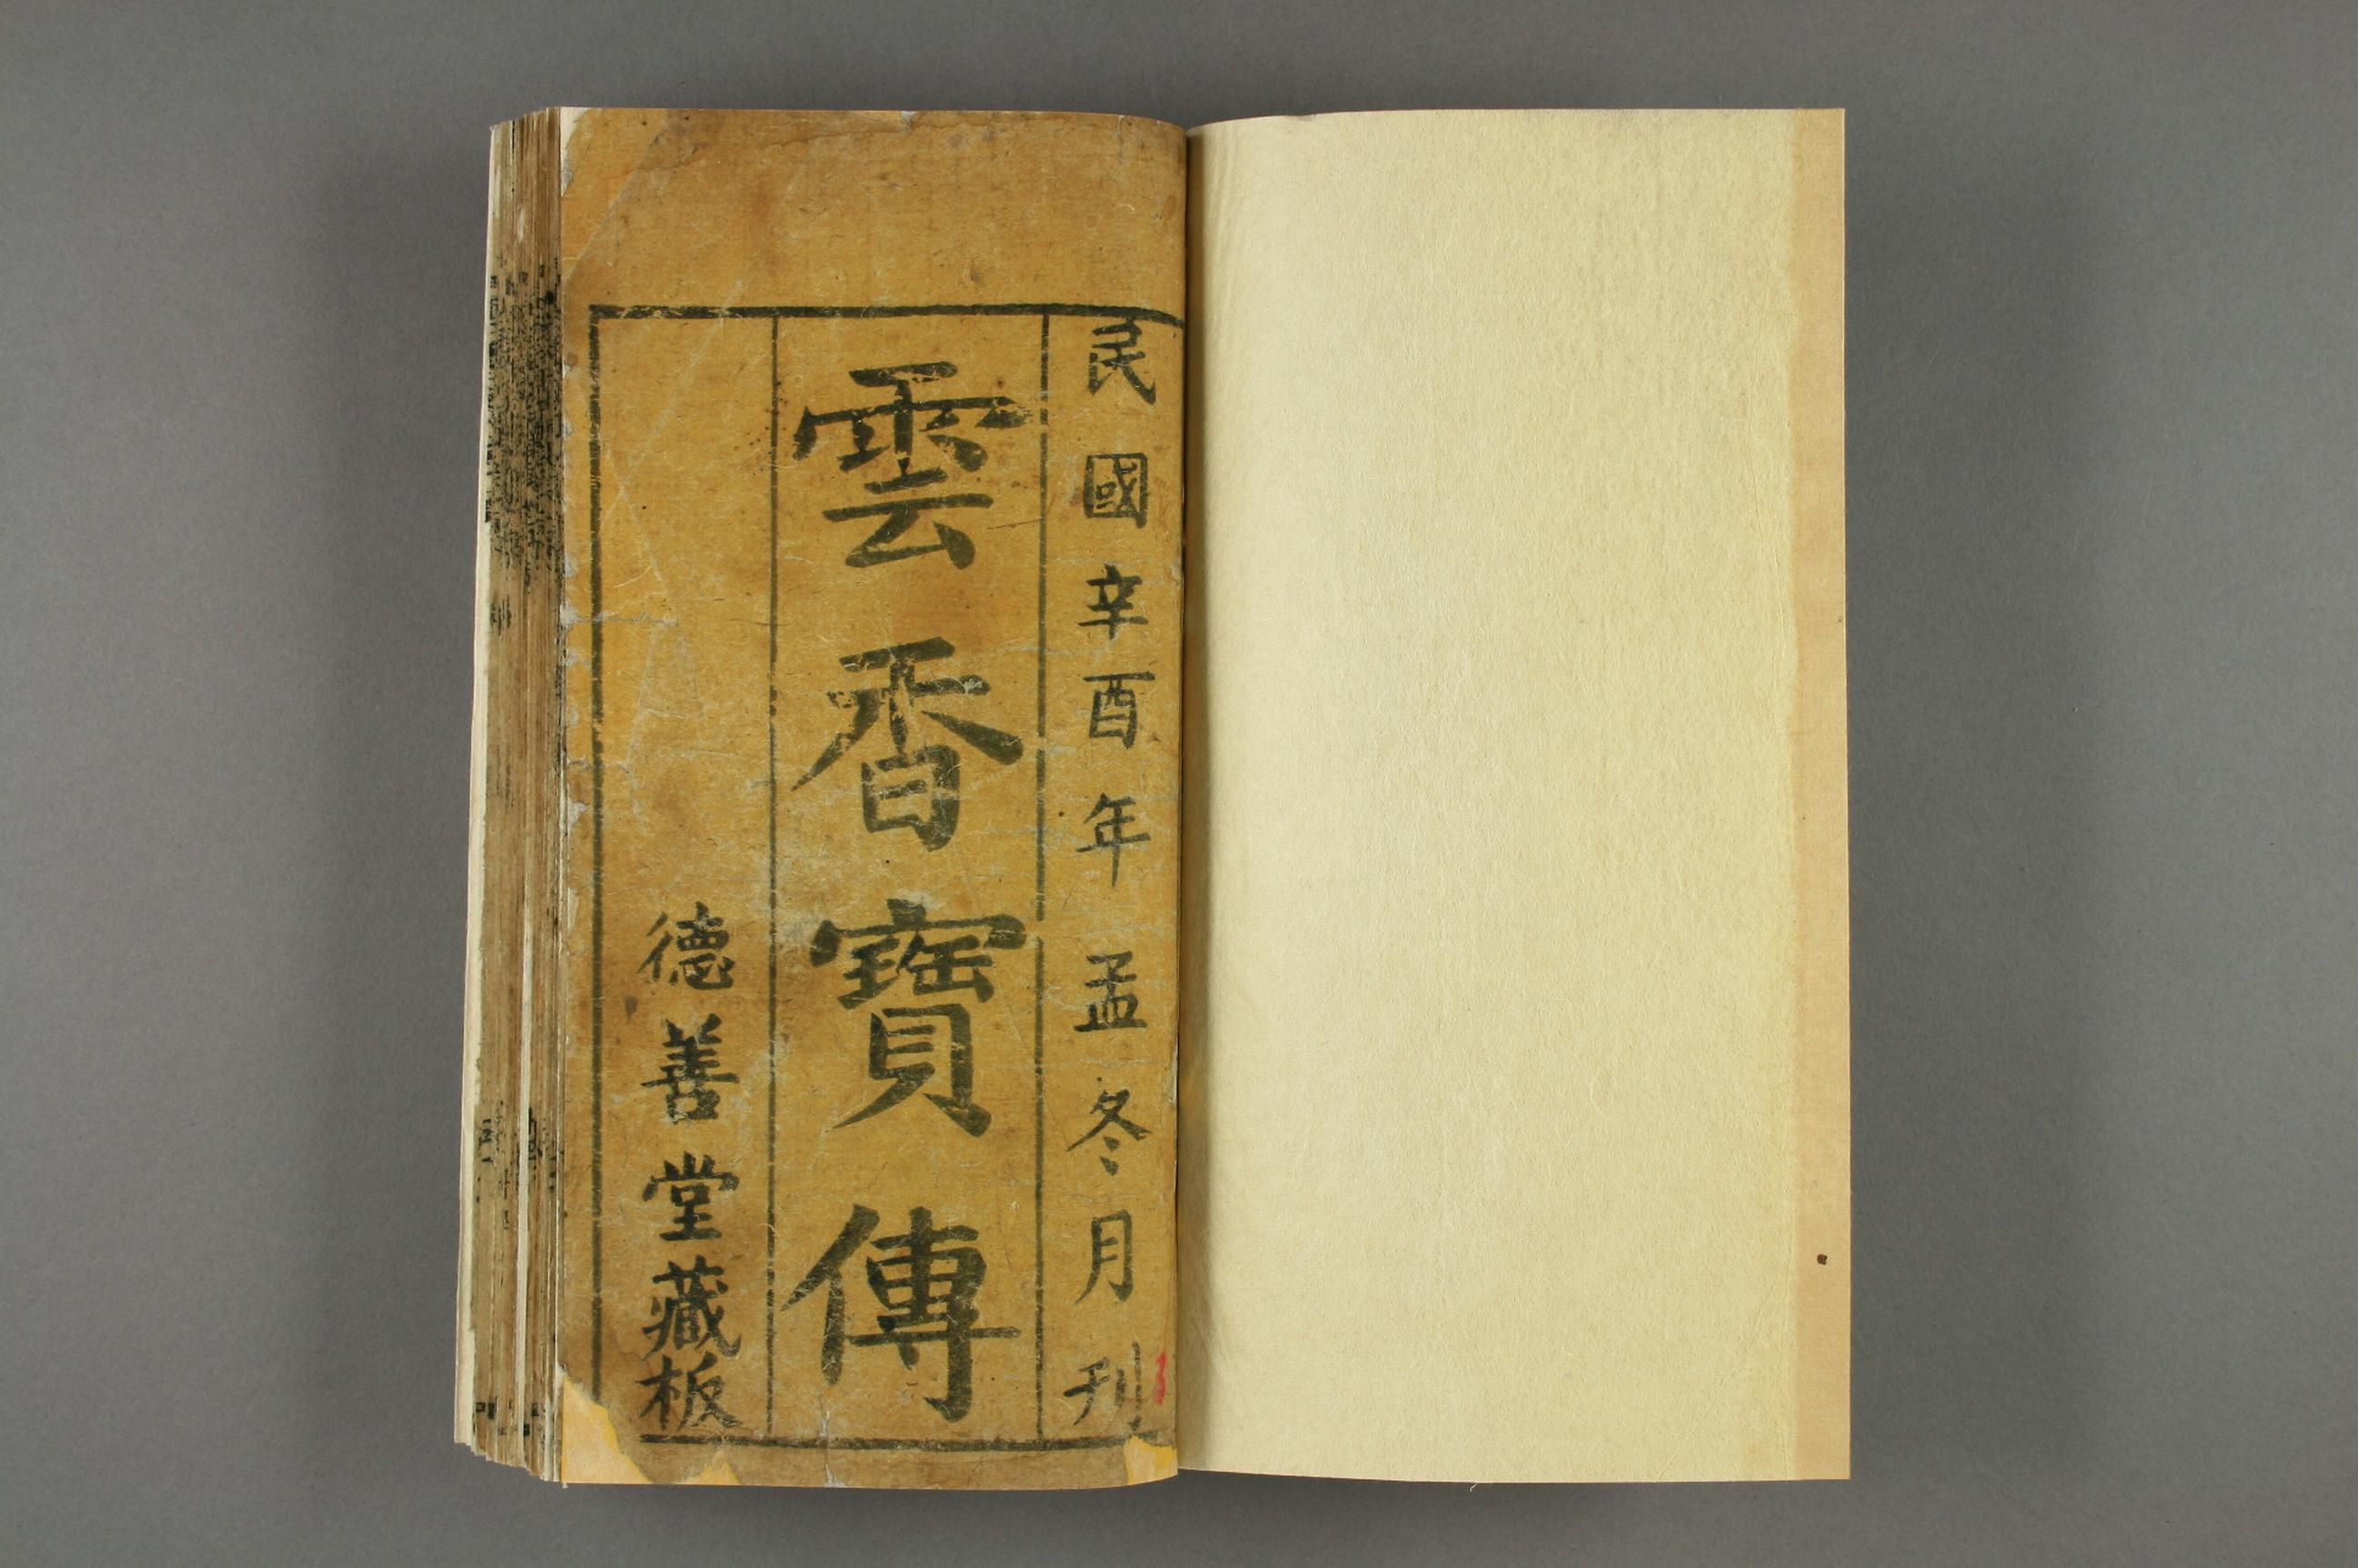 民國辛酉年孟冬月刊
雲香寶傳
德善堂藏板